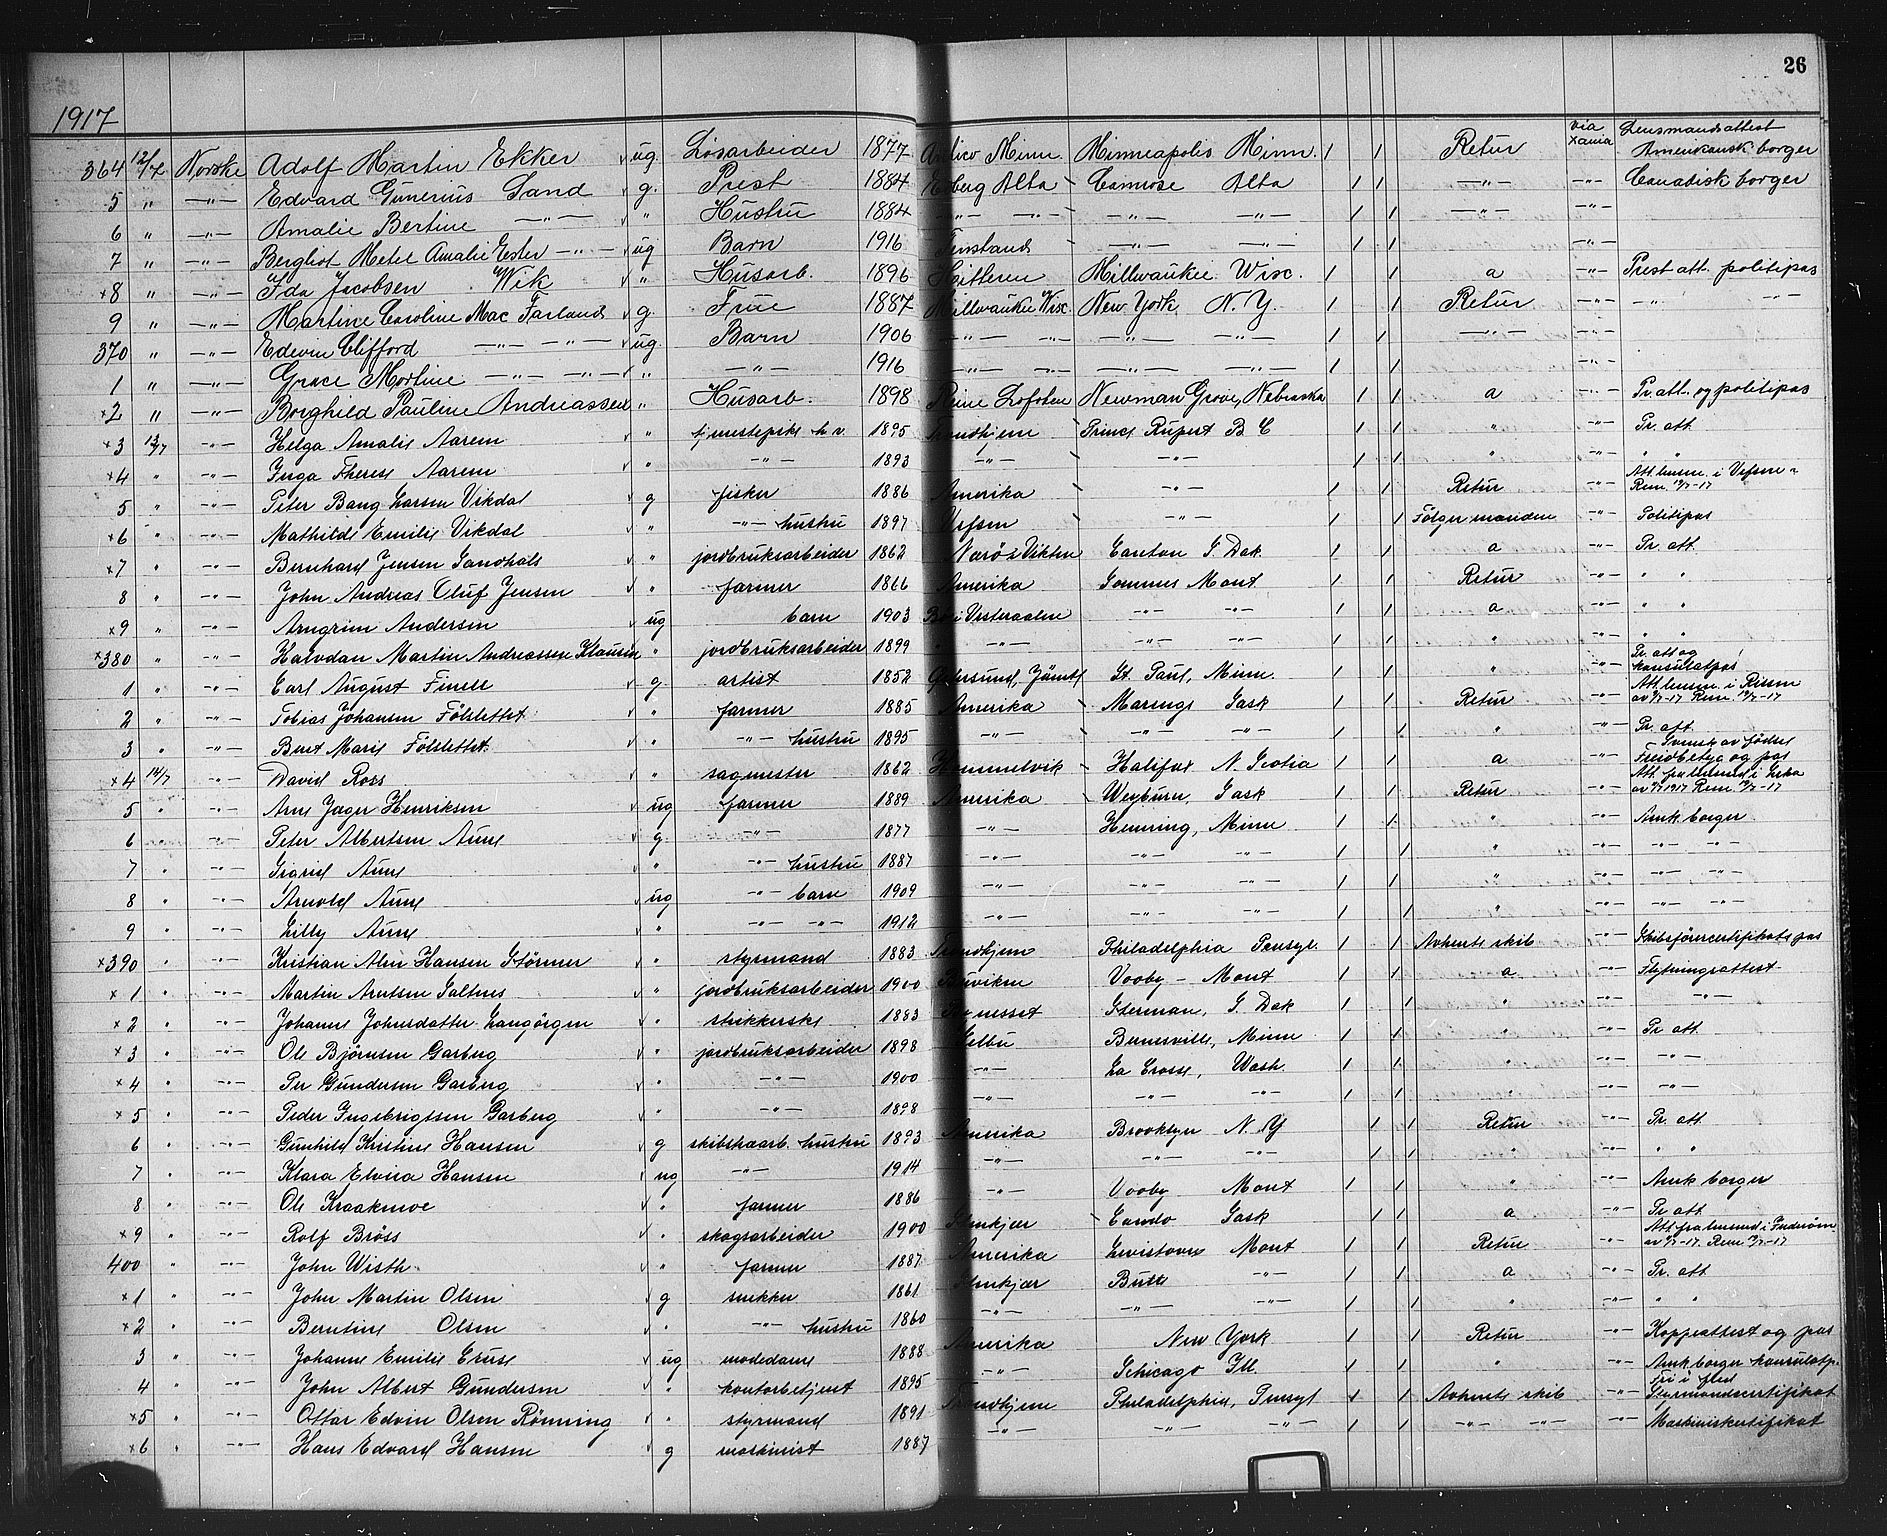 26
1917
364 12/7 Norske Adolf Martin Ekker ug. Løsarbeider 1877 Minn. Minneapolis Minn. 1 1 Retur via Xania Lensmandsattest Amerikansk borger
5 " —"— Edvard Gunerius Sand g. Prest 1884 Esberg Alta Camrose Alta 1 1 —"— —"— Canadisk borger
6 " —"— Amalie Bertine —"— " Hustru 1884 —"— —"— —"— —"— 1 1 —"— —"—
7 " —"— Bergliot Metel Amalie Ester —"— ug Barn 1916 —"— —"— 1 1 —"—
x8 " —"— Ida Jacobsen Wik " Husarb. 1896 Hitteren Millwaukee Wisc. 1 1 a —"— Prest att. politipas
9 " —"— Martine Caroline Mac Farland g. Frue 1887 Millwaukee Wisc. New York N.Y. 1 1 Retur —"— —"— —"—
370 " —"— Edevin Clifford —"— —"— ug. Barn 1906 —"— —"— —"— —"— 1 1 —"— —"—
1 " —"— Grace Mortine —"— —"— " —"— 1916 —"— —"— —"— —"— 1 1 —"—
x2 " —"— Borghild Pauline Andreassen " Husarb. 1898 Reine Lofoten Newman Grove, Nebraska 1 1 a —"— Pr. att. og politipas
x3 13/7 —"— Helga Amalie Aarem " tjenestepike h.v. 1895 Trondhjem Prince Rupert B C 1 1 " —"— Pr. att.
x4 " —"— Inga Therese Aarem " —"— 1893 —"— —"— 1 1 " —"— " "
5 " —"— Peter Bang Larsen Vikdal g fisker 1886 Amerika —"— 1 1 Retur —"— Att. lensm. i Vefsen
x6 " —"— Mathilde Emilie Vikdal " —"— hustru 1897 Vefsen —"— 1 1 Følger manden —"— Politipas
x7 " —"— Bernhard Jensen Sandhals " jordbruksarbeider 1862 Nærø i Vikten Canton S. Dak. 1 1 a —"— Pr. att.
8 " —"— John Andreas Oluf Jensen " farmer 1866 Amerika Mont 1 1 Retur —"— " "
x9 " —"— Arngrim Andersen ug barn 1903 Bø i Vesteraalen —"— —"— 1 1 a —"— " "
x380 " —"— Halvdan Martin Andreassen Klausen " jordbruksarbeider 1899 —"— —"— —"— 1 1 " —"— " "
1 " —"— Carl August Finell g. artist 1852 Østersund, Jämtl St. Paul, Minn. 1 1 " —"— Pr. att og konsulatpas
2 " —"— Tobias Johansen Fölstettet " farmer 1885 Amerika Sask 1 1 Retur —"— Att. lensm. i Rissen
3 " —"— Beret Marie Fölstettet " —"— hustru 1895 —"— —"— —"— 1 1 " —"— Pr. att.
x4 14/7 —"— David Ross " sagmester 1862 Hommelvik Halifax N. Scotia 1 1 a —"— Svensk av fødsel
5 " —"— Arne Jäger Henriksen ug farmer 1889 Amerika Weyburn, Sask 1 1 Retur —"—
6 " —"— Peter Albertsen Aune g. —"— 1877 —"— Henning, Minn 1 1 " —"— Amk. borger
7 " —"— Sigrid Aune " —"— hustru 1887 —"— —"— —"— 1 1 " —"— —"— —"—
8 " —"— Arnold Aune ug —"— barn 1909 —"— —"— —"— 1 1 " —"— —"— —"—
9 " —"— Lilly Aune " —"— —"— 1912 —"— —"— —"— 1 1 " —"— —"— —"—
x390 " —"— Kristian Alen Hansen Störmer " styrmand 1883 Trondhjem Philadelphia Pensyl. 1 1 Avhente skib —"— Skibsförercertifikat pas
x1 " —"— Martin Arntsen Saltnes " jordbruksarbeider 1900 Vooby — Mont 1 1 a —"— Flytningsattest
x2 " —"— Johanne Johnsdatter Langörgen " strikkerske 1883 S. Dak 1 1 " —"— —"—
x3 " —"— Ole Björnsen Garberg " jordbruksarbeider 1898 Selbu Minn 1 1 " —"— Pr att.
x4 " —"— Per Gundersen Garberg " —"— 1900 —"— La Crosse, Wash. 1 1 " —"— —"—
x5 " —"— Peder Ingebrigtsen Garberg " —"— 1898 —"— —"— —"— 1 1 " —"— —"—
6 " —"— Gunhild Kristine Hansen g skibstraarb. hustru 1893 Amerika Brooklyn N.Y 1 1 Retur —"— Pr. att.
7 " —"— Klara Elvira Hansen ug —"— 1914 —"— —"— —"— 1 1 " —"— " "
8 " —"— Ole Kraakmoe " farmer 1886 —"— Vooby Mont 1 1 " —"— Amk borger
x9 " —"— Rolf Bröss " skogsarbeider 1900 Stenkjær Cando Sask 1 1 a —"— Pr att.
400 " —"— John Wisth " farmer 1887 Amerika Lewistown Mont 1 1 Retur —"— Att. fra lensmd i Inderøen
x1 " —"— John Martin Olsen g snekker 1861 Stenkjær Butte —"— 1 1 a —"— Pr. att
x2 " —"— Berntine Olsen " —"— hustru 1860 —"— —"— —"— 1 1 " —"— " "
3 " —"— Johanne Emilie Cruse ug modedame 1888 Amerika New York 1 1 Retur —"— Koppeattest og pas
4 " —"— John Albert Gundersen " kontorbetjent 1895 —"— Schicago Ill. 1 1 " —"— Amk borger konsulatp.
x5 " —"— Ottar Edvin Olsen Rönning " styrmand 1891 Trondhjem Philadelphia, Pensyl 1 1 Avhente skib —"— Styrmandscertifikat
x6 " —"— Hans Edvard Hansen g maskinist 1887 —"— —"— —"— 1 1 —"— —"— —"— Maskinistcertifikat